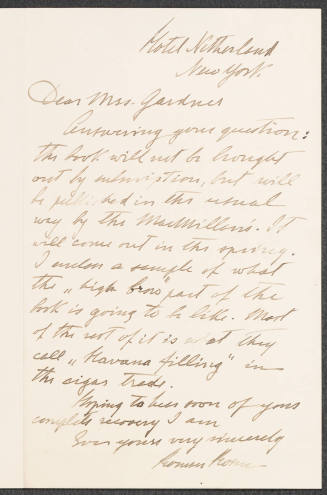 Hotel Netherland
New York
Dear Mrs. Gardner
Answering your question:
this book will not be brought
out by subscription, but will
be published in the usual
way by the MacMillon's. It
will come out in the spring.
I enclose a sample of what
the „high brow" part of the
book is going to be like. Most
of the rest of it is what they
call „Havana filling" in
the cigar trade.
Hoping to hear soon of your
complete recovery I am
Ever yours very sincerely